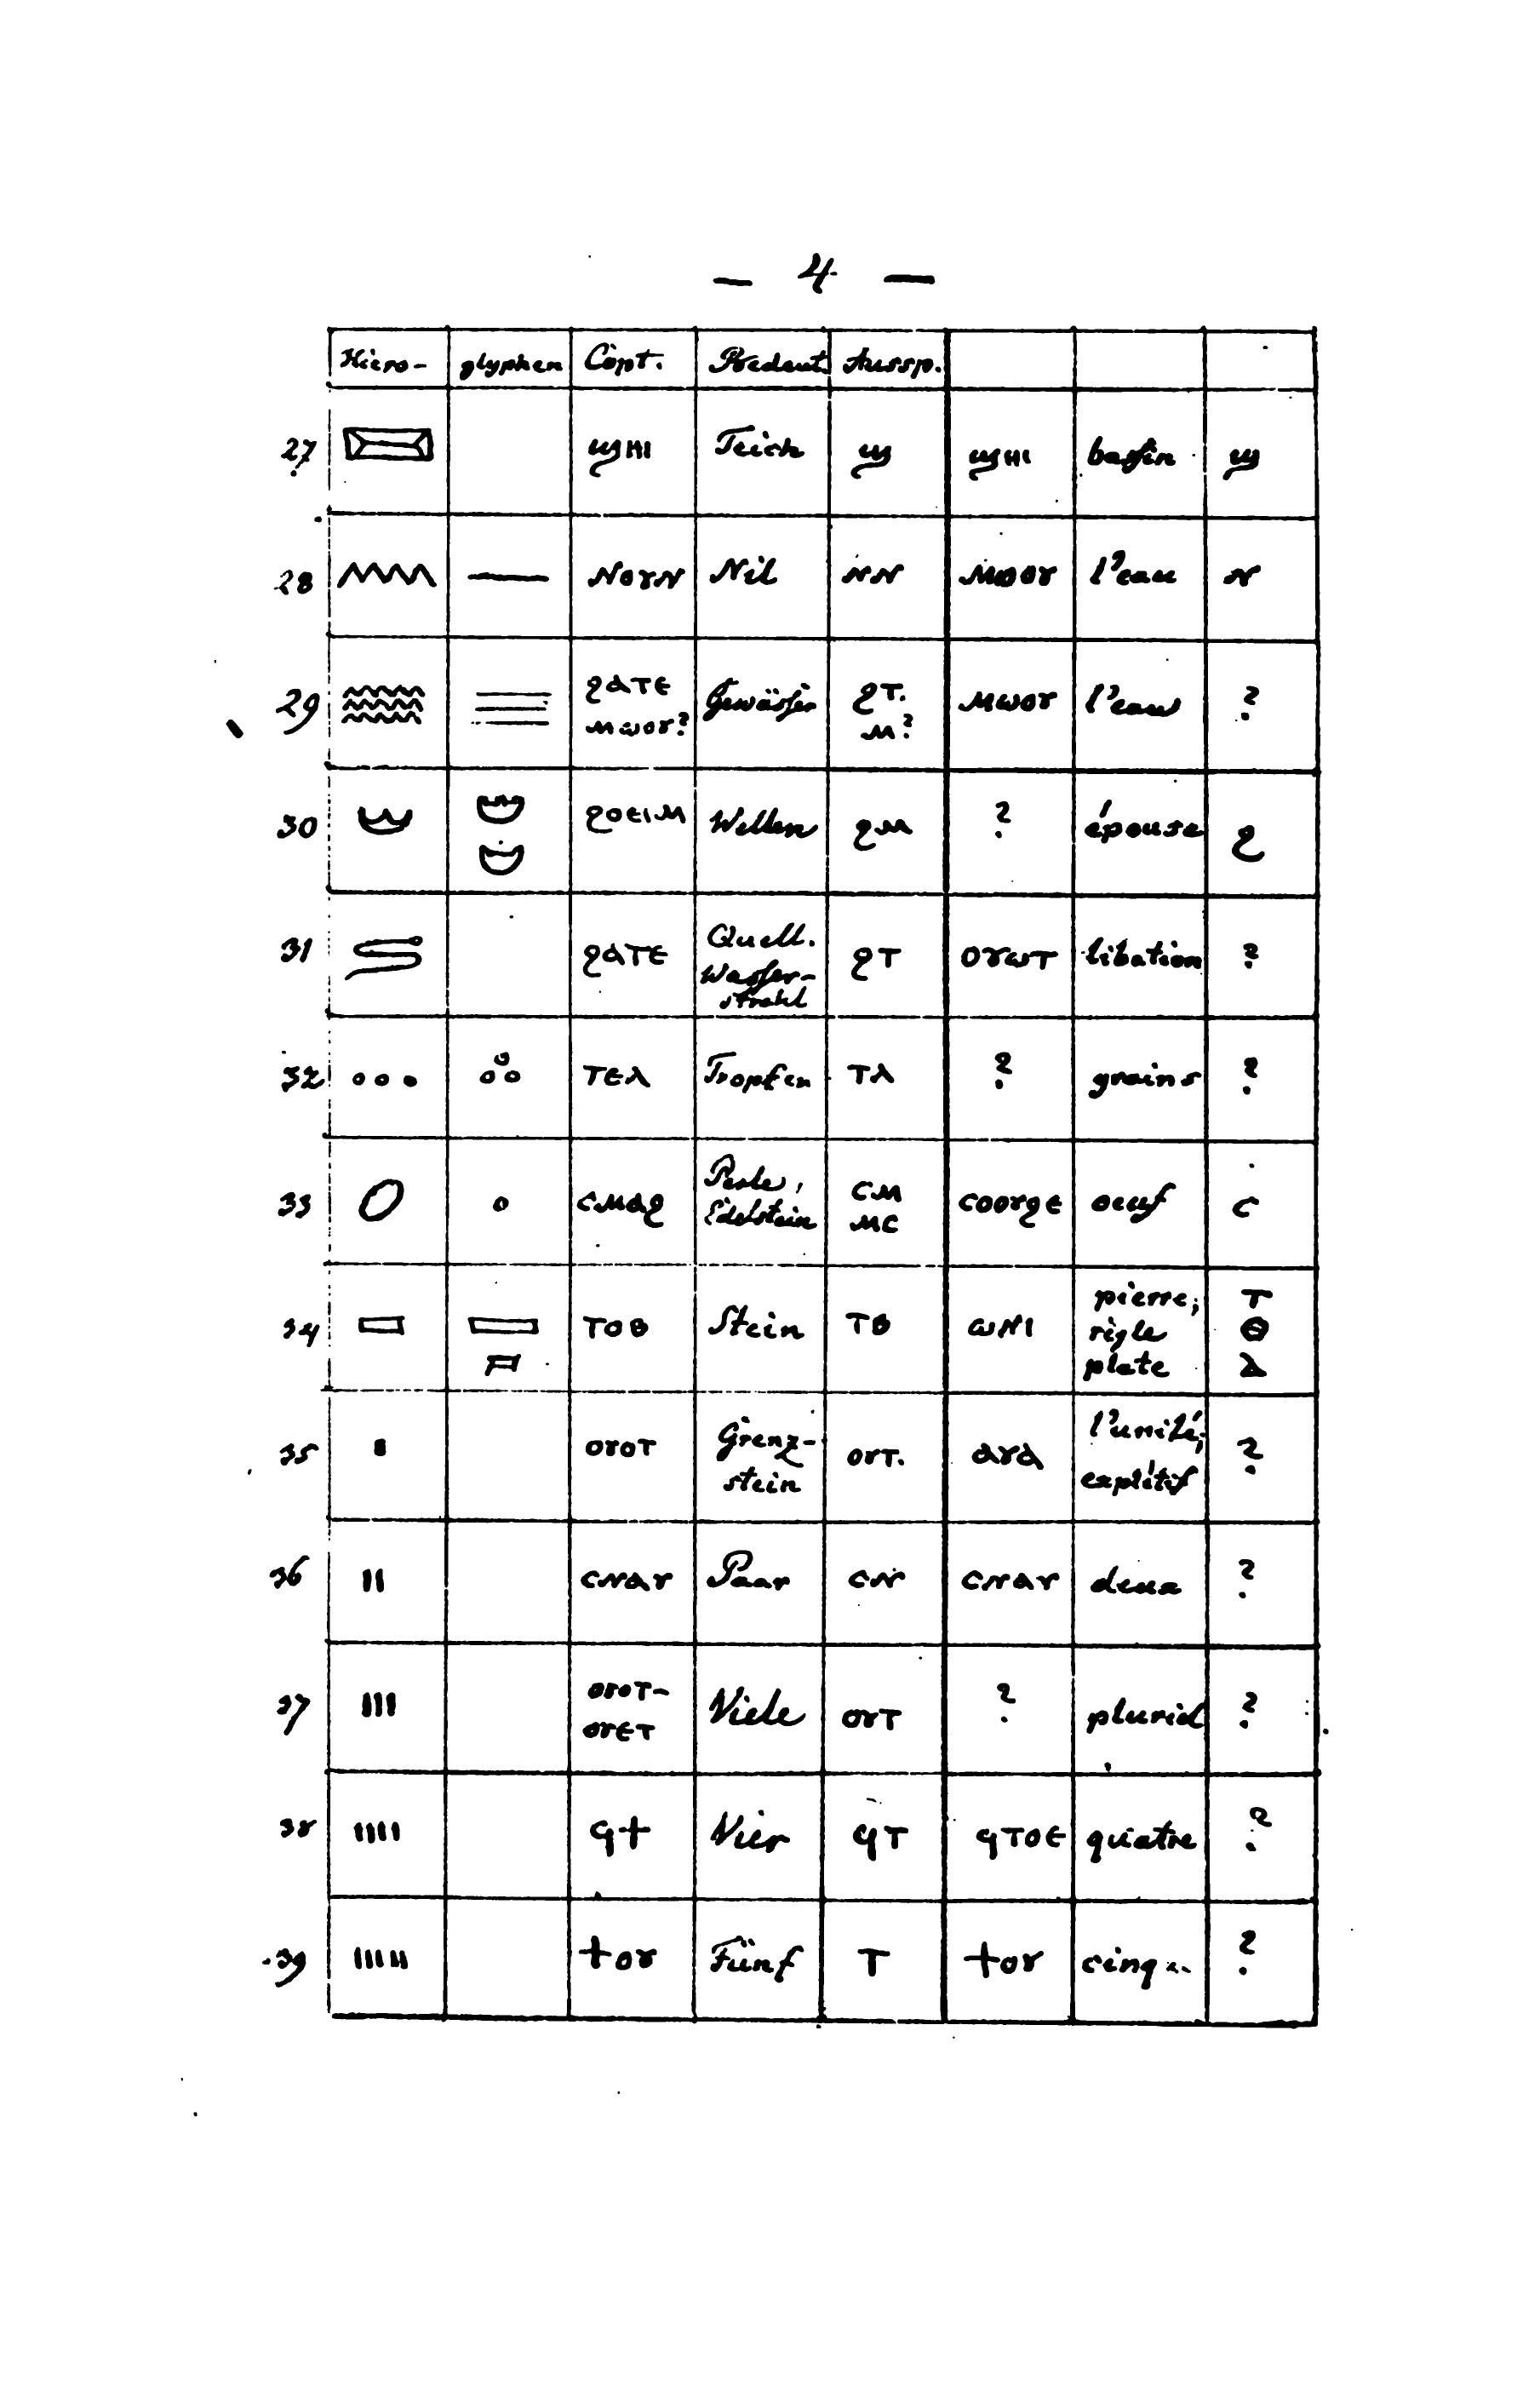 — 4 —
Hiero- glyphen Copt. Bedeut. Aussp.
27 ϣⲏⲓ Teich ϣ ϣⲏⲓ bassin ϣ
28 ⲛⲟⲩⲛ Nil ⲛⲛ ⲙⲟⲟⲩ l'eau ⲛ
29 ϩⲁⲧⲉ ⲙⲱⲟⲩ? Gewässer ϩⲧ. ⲙ? ⲙⲱⲟⲩ l'eau ?
30 ϩⲟⲉⲓⲙ Wellen ϩⲙ ? épouse ϩ
31 ϩⲁⲧⲉ Quell. Wasser- strahl ϩⲧ ⲟⲩⲱⲧ libation ?
32 ⲧⲉⲗ Tropfen ⲧⲗ ? grains ?
33 ⲥⲙⲁϩ Perle, Edelstein ⲥⲙ ⲙⲥ ⲥⲟⲟⲩϩⲉ oeuf ⲥ
34 ⲧⲟⲃ Stein ⲧⲃ ⲱⲛⲓ pierre; règle plate ⲧ ⲑ ⲇ
35 ⲟⲩⲟⲧ Grenz- stein ⲟⲩⲧ. ⲁⲩⲁ l'unité; explétif ?
36 ⲥⲛⲁⲩ Paar ⲥⲛ ⲥⲛⲁⲩ deux ?
37 ⲟⲩⲟⲧ- ⲟⲩⲉⲧ Viele ⲟⲩⲧ ? pluriel ?
38 ϥϯ Vier ϥⲧ ϥⲧⲟⲉ quatre ?
39 ϯⲟⲩ Fünf ⲧ ϯⲟⲩ cinq ?